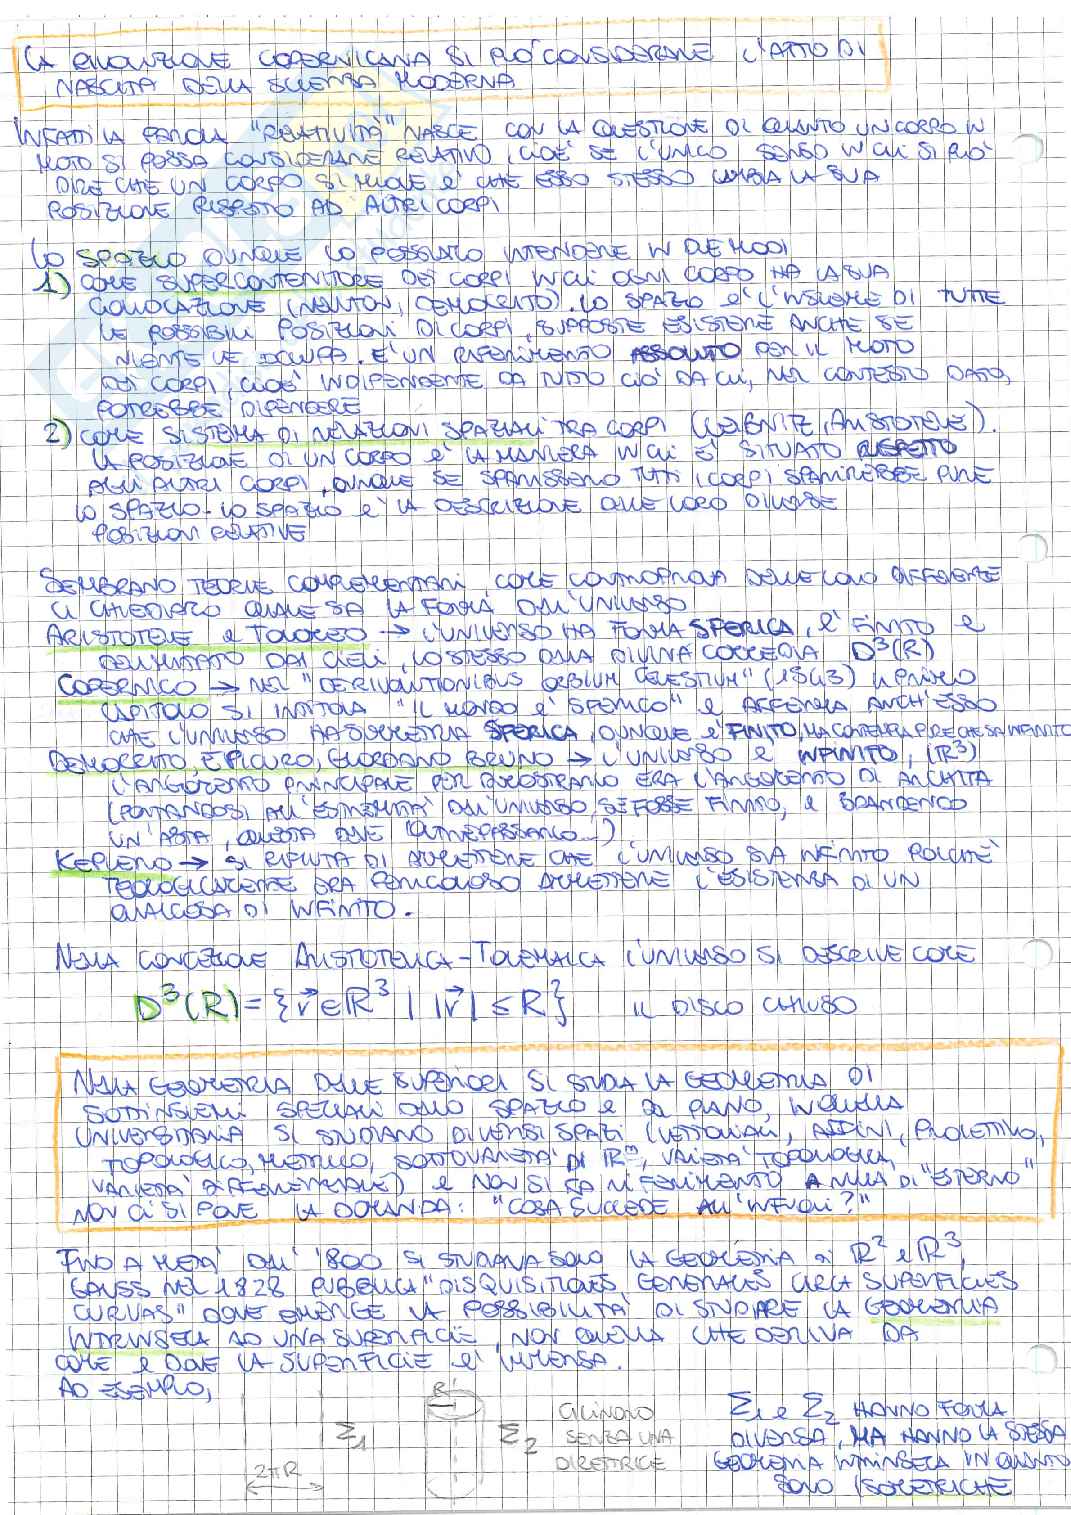 LA RIVOLUZIONE COPERNICANA SI PUÒ CONSIDERARE L'ATTO DI
NASCITA DELLA SCIENZA MODERNA
INFATTI LA PAROLA "RELATIVITÀ" NASCE CON LA QUESTIONE DI QUANTO UN CORPO IN
MOTO SI POSSA CONSIDERARE RELATIVO, CIOÈ SE L'UNICO SENSO IN CUI SI PUÒ
DIRE CHE UN CORPO SI MUOVE È CHE ESSO STESSO CAMBIA LA SUA
POSIZIONE RISPETTO AD ALTRI CORPI
LO SPAZIO DUNQUE LO POSSIAMO INTENDERE IN DUE MODI
1) COME SUPERCONTENITORE DEI CORPI IN CUI OGNI CORPO HA LA SUA
COLLOCAZIONE (NEWTON, DEMOCRITO). LO SPAZIO È L'INSIEME DI TUTTE
LE POSSIBILI POSIZIONI DI CORPI, SUPPOSTE ESISTERE ANCHE SE
NIENTE LE OCCUPA. È UN RIFERIMENTO ASSOLUTO PER IL MOTO
DEI CORPI, CIOÈ INDIPENDENTE DA TUTTO CIÒ DA CUI, NEL CONTESTO DATO,
POTREBBE DIPENDERE
2) COME SISTEMA DI RELAZIONI SPAZIALI TRA CORPI (LEIBNITZ, ARISTOTELE).
LA POSIZIONE DI UN CORPO È LA MANIERA IN CUI È SITUATO RISPETTO
AGLI ALTRI CORPI, DUNQUE SE SPARISSERO TUTTI I CORPI SPARIREBBE PURE
LO SPAZIO. LO SPAZIO È LA DESCRIZIONE DELLE LORO DIVERSE
POSIZIONI RELATIVE
SEMBRANO TEORIE COMPLEMENTARI, COME CONTROPROVA DELLE LORO DIFFERENZE
CI CHIEDIAMO QUALE SIA LA FORMA DELL'UNIVERSO
ARISTOTELE e TOLOMEO → L'UNIVERSO HA FORMA SFERICA, È FINITO E
DELIMITATO DAI CIELI, LO STESSO DALLA DIVINA COMMEDIA D³(R)
COPERNICO → NEL "DE RIVOLUTIONIBUS ORBIUM CELESTIUM" (1543) IL PRIMO
CAPITOLO SI INTITOLA "IL MONDO È SFERICO" e AFFERMA ANCH'ESSO
CHE L'UNIVERSO HA SIMMETRIA SFERICA, DUNQUE È FINITO, MA CONTEMPLA PURE CHE SIA INFINITO
DEMOCRITO, EPICURO, GIORDANO BRUNO → L'UNIVERSO È INFINITO, (ℝ³)
L'ARGOMENTO PRINCIPALE PER DIMOSTRARLO ERA L'ARGOMENTO DI ARCHITA
(PORTANDOSI ALL'ESTREMITÀ DELL'UNIVERSO, SE FOSSE FINITO, e SPORGENDO
UN'ASTA, QUESTA DEVE OLTREPASSARLO...)
KEPLERO → SI RIFIUTA DI AMMETTERE CHE L'UNIVERSO SIA INFINITO POICHÈ
TEOLOGICAMENTE ERA PERICOLOSO AMMETTERE L'ESISTENZA DI UN
QUALCOSA DI INFINITO.
NELLA CONCEZIONE ARISTOTELICA-TOLEMAICA L'UNIVERSO SI DESCRIVE COME
D³(R) = {r⃗ ∈ ℝ³ | |r⃗| ≤ R²} IL DISCO CHIUSO
NELLA GEOMETRIA DELLE SUPERIORI SI STUDIA LA GEOMETRIA DI
SOTTINSIEMI SPECIALI DELLO SPAZIO e DEL PIANO, IN QUELLA
UNIVERSITARIA SI STUDIANO DIVERSI SPAZI (VETTORIALI, AFFINI, PROIETTIVO,
TOPOLOGICO, METRICO, SOTTOVARIETÀ DI ℝⁿ, VARIETÀ TOPOLOGICA,
VARIETÀ DIFFERENZIALE) e NON SI FA RIFERIMENTO A NULLA DI "ESTERNO"
NON CI SI PONE LA DOMANDA: "COSA SUCCEDE ALL'INFUORI?"
FINO A METÀ DELL'800 SI STUDIAVA SOLO LA GEOMETRIA DI ℝ² e ℝ³,
GAUSS NEL 1828 PUBBLICA "DISQUISITIONES GENERALES CIRCA SUPERFICIES
CURVAS" DOVE EMERGE LA POSSIBILITÀ DI STUDIARE LA GEOMETRIA
INTRINSECA AD UNA SUPERFICIE, NON QUELLA CHE DERIVA DA
COME e DOVE LA SUPERFICIE È IMMERSA.
AD ESEMPIO,
2πR
Σ₁
R
Σ₂
CILINDRO
SENZA UNA
DIRETTRICE
Σ₁ e Σ₂ HANNO FORMA
DIVERSA, MA HANNO LA STESSA
GEOMETRIA INTRINSECA IN QUANTO
SONO ISOMETRICHE